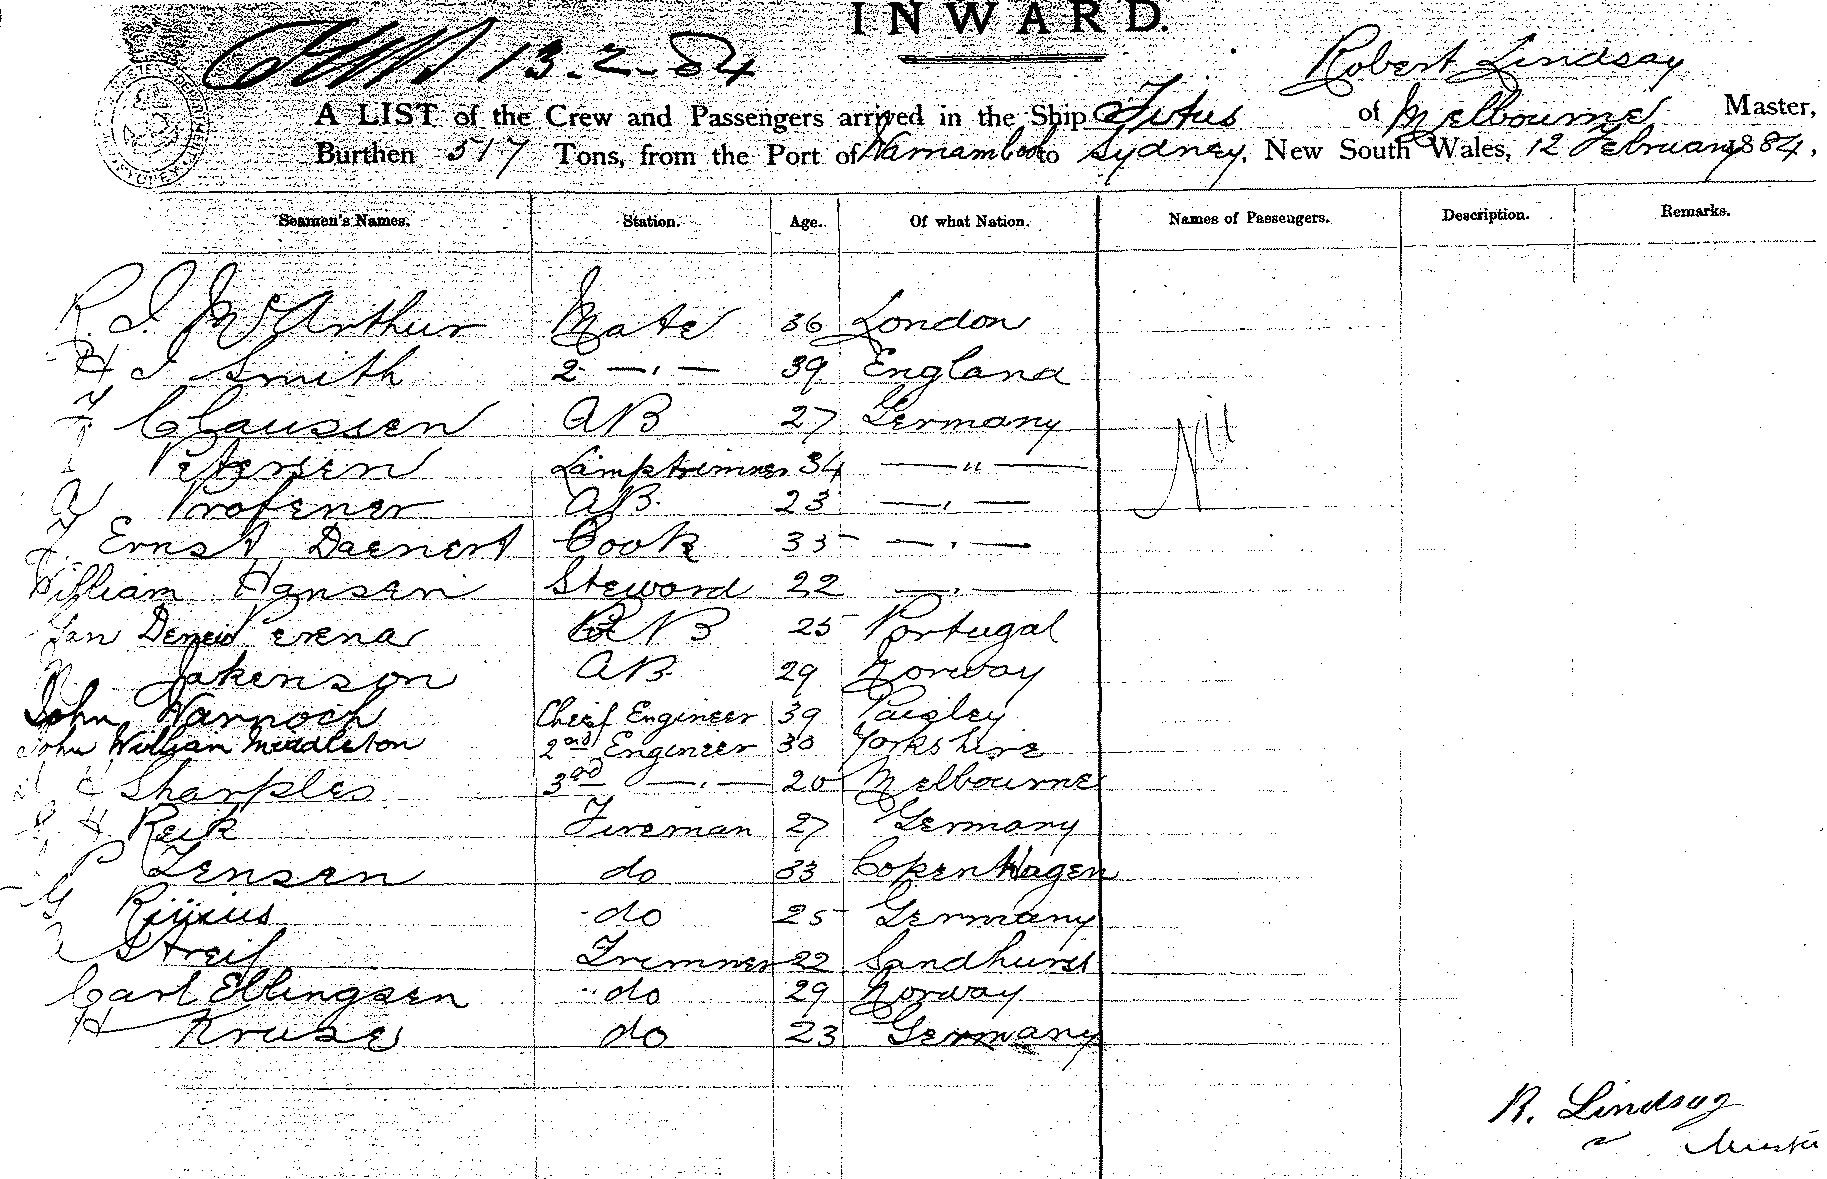 INWARD.
13.2.84
Robert Lindsay
A LIST of the Crew and Passengers arrived in the Ship Titus of Melbourne Master,
Burthen 517 Tons, from the Port of Warnambool to Sydney, New South Wales, 12 February 1884.
Seamen's Names. Station. Age. Of what Nation. Names of Passengers. Description. Remarks.
R. I. McArthur Mate 36 London
H I Smith 2 — " — 39 England
Claussen AB 27 Germany
Petersen Lamptrimmer 34 — " —
Nil
Profener AB. 23 — " —
Ernst Daenert Cook 35 — " —
William Hansen Steward 22 — " —
Jan AB 25 Portugal
Jakenson AB. 29 Norway
John Warnoch Chief Engineer 39 Paisley
John William Middleton 2nd Engineer 30 Yorkshire
Sharples 3rd — " — 20 Melbourne
H Reik Fireman 27 Germany
P Jensen do 33 CopenHagen
G do 25 Germany
Streif Trimmer 22 Sandhurst
Carl Ellingsen do 29 Norway
H Kruse do 23 Germany
R. Lindsay
Master